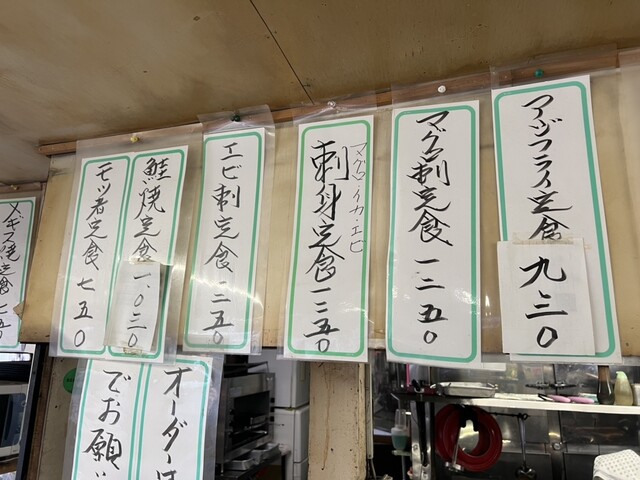 アジフライ定食 九三〇
マグロ刺定食 一二五〇
マグロ・イカ・エビ
刺身定食 一二五〇
エビ刺定食 一二五〇
鮭焼定食 一、〇三〇
モツ煮定食 七五〇
オーダーは
でお願い